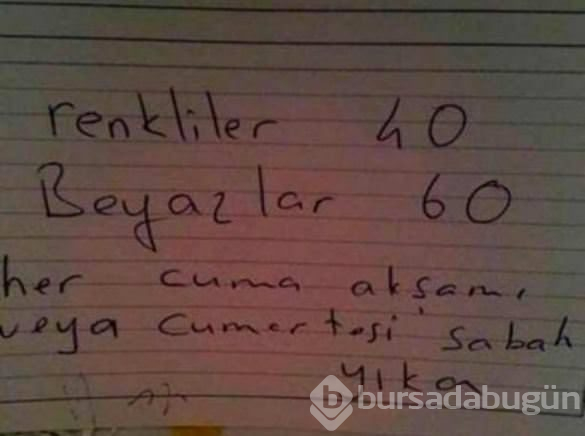 renkliler 40
Beyazlar 60
her cuma akşamı
veya Cumartesi sabah
yıka
bursadabugün